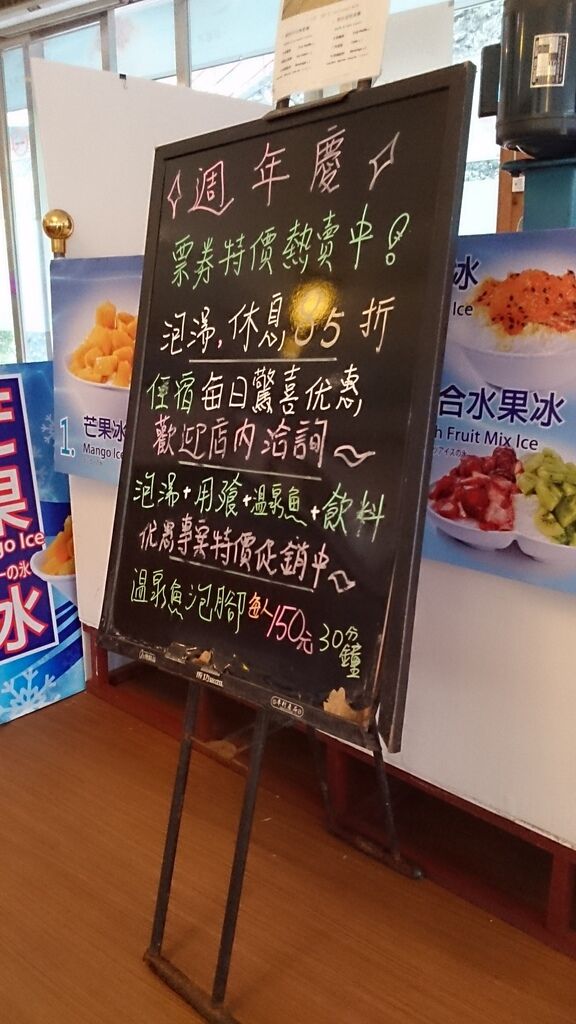 週年慶
票券特價熱賣中!
泡湯,休息85折
住宿每日驚喜优惠
歡迎店內洽詢~
泡湯+用餐+溫泉魚+飲料
优惠專案特價促銷中~
溫泉魚泡腳每人150元30分鐘
1.
芒果冰
Mango Ice
果
go Ice
ーの氷
冰
冰
Ice
合水果冰
h Fruit Mix Ice